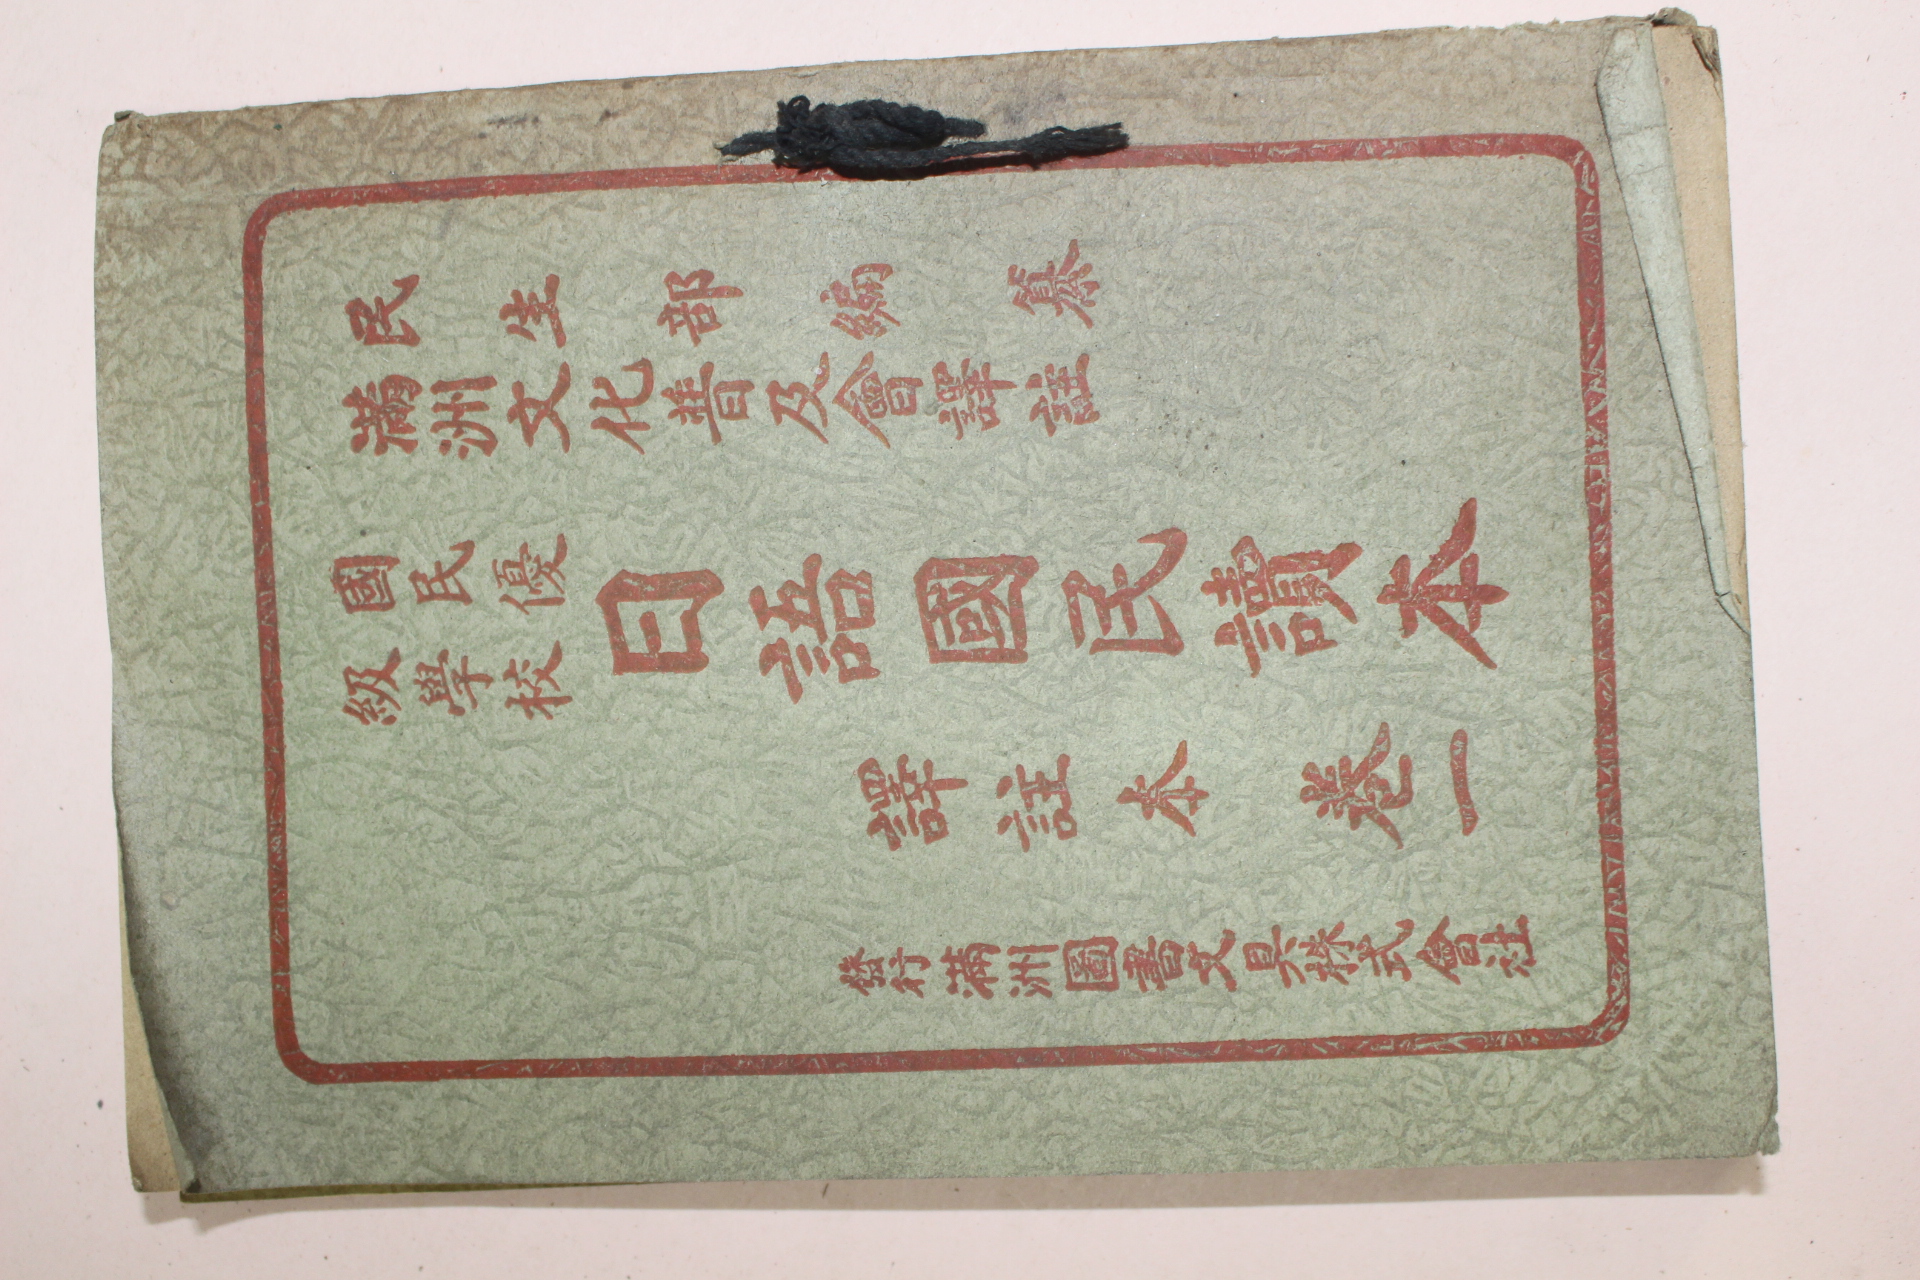 民生部編纂
滿洲文化普及會譯註
國民優
級學校
日語國民讀本
譯註本 卷一
發行 滿洲圖書文具株式會社